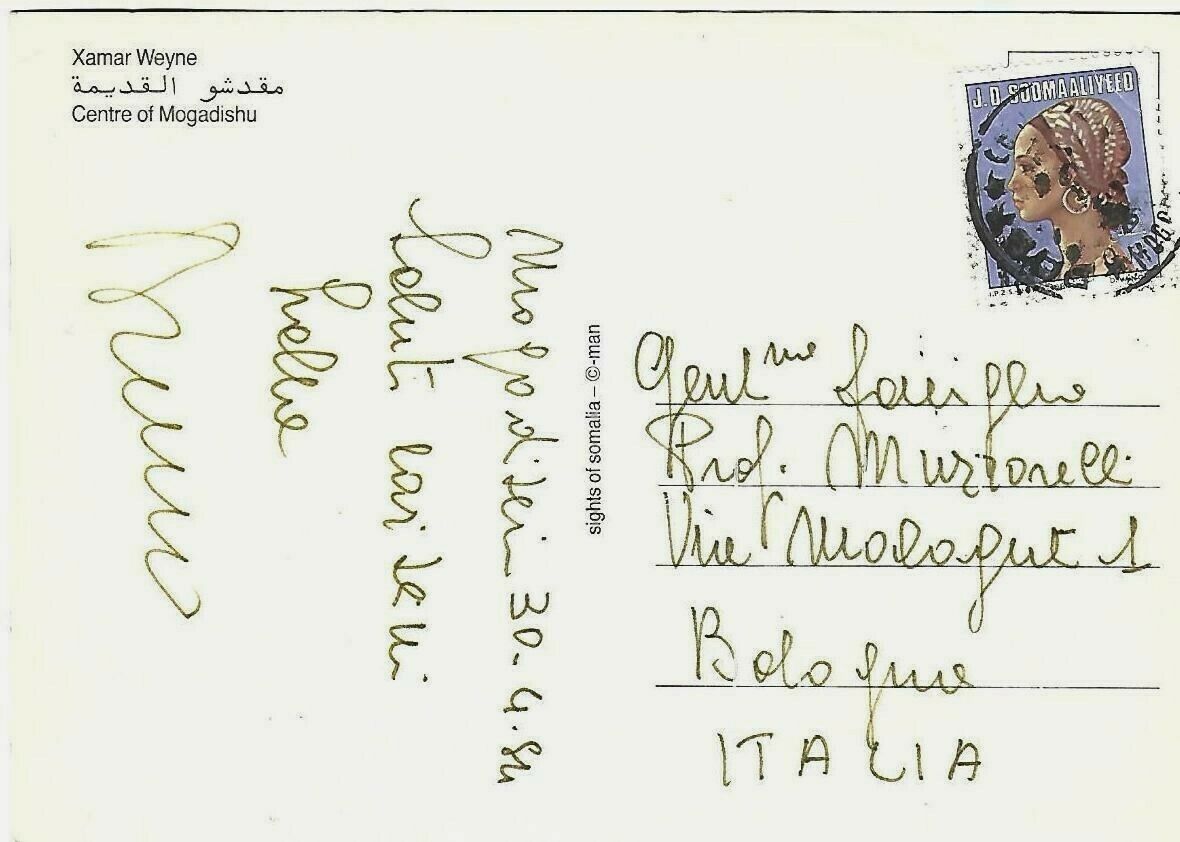 Xamar Weyne
مقدشو القديمة
Centre of Mogadishu
J.D. SOOMAALIYEED
Mogadiscio 30.4.84
Saluti carissimi
sights of somalia – ©-man
Gent.me Famiglia
Prof. Muzzarelli
Via Malaguti 1
Bologna
ITALIA